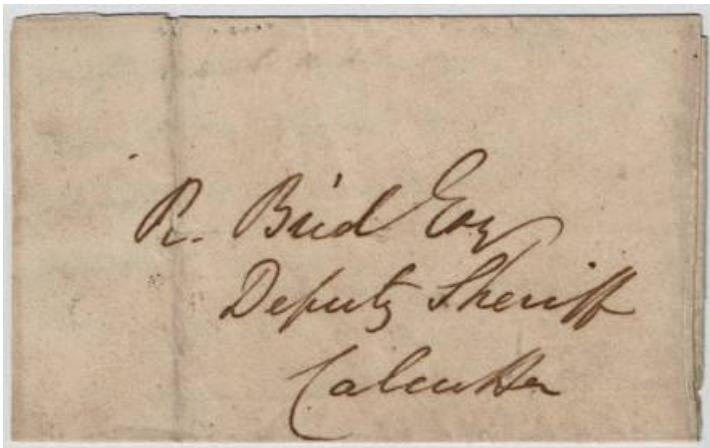 R. Bird Esq
Deputy Sheriff
Calcutta